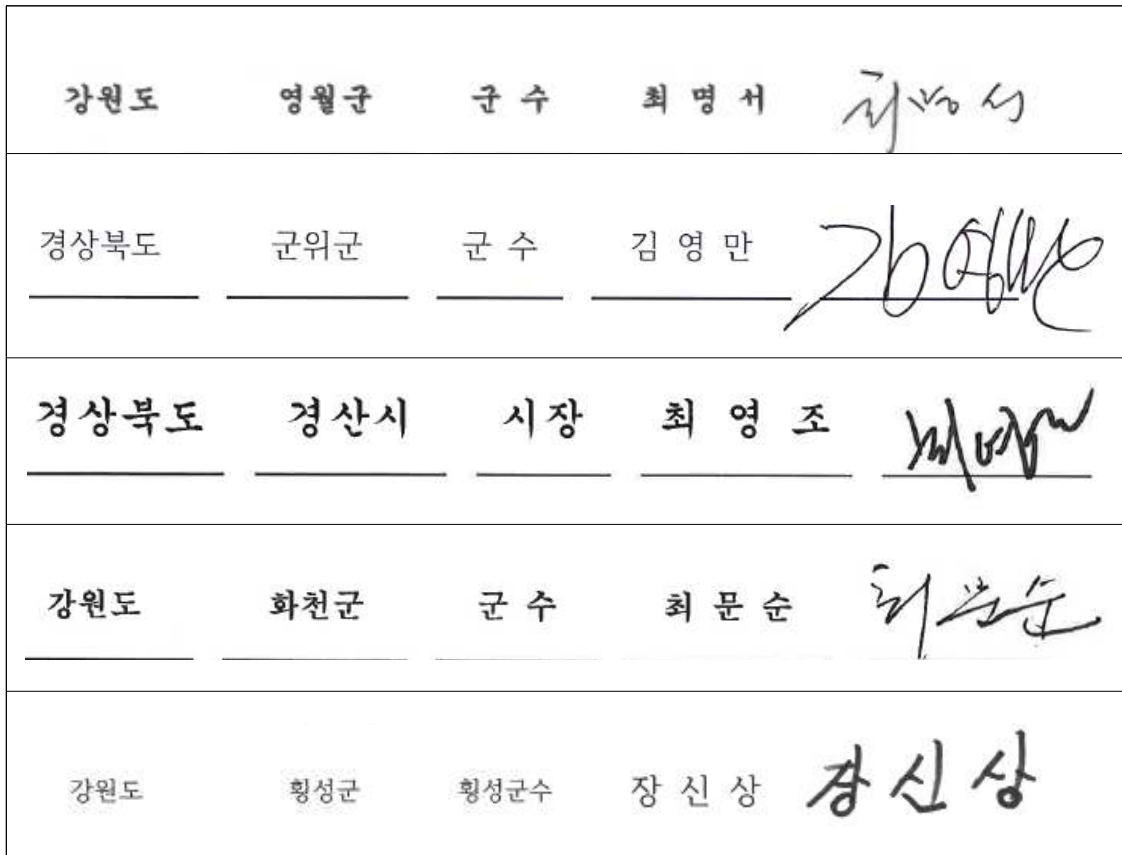 강원도 영월군 군 수 최 명 서 최명서
경상북도 군위군 군 수 김 영 만 김영만
경상북도 경산시 시장 최 영 조
강원도 화천군 군 수 최 문 순 최문순
강원도 횡성군 횡성군수 장 신 상 장신상